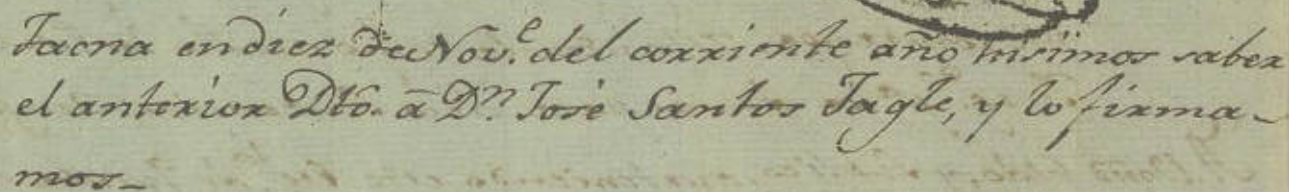 Tacna en diez de Nov.e del corriente año hisimos saber
el anterior Dto. â Dn. José Santos Tagle, y lo firma-
mos-